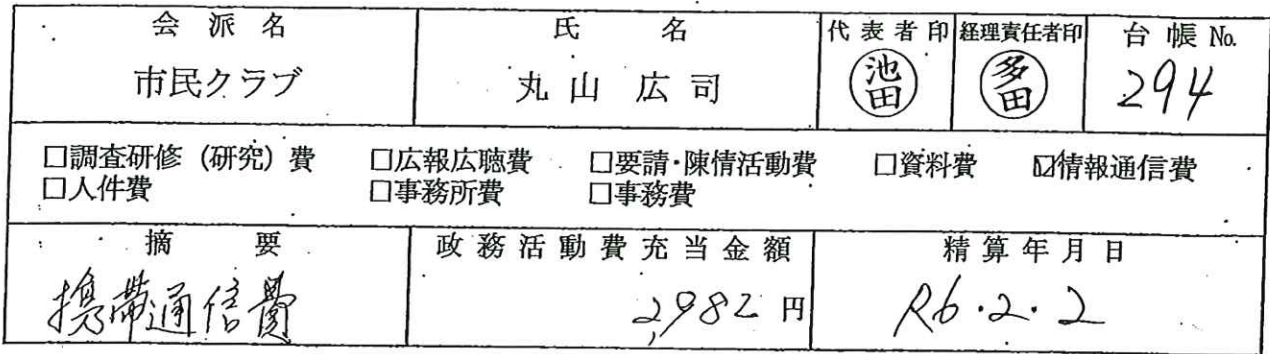 会派名 氏名 代表者印 経理責任者印 台帳No.
市民クラブ 丸山 広司 池田 多田 294
□調査研修（研究）費 □広報広聴費 □要請・陳情活動費 □資料費 ☑情報通信費
□人件費 □事務所費 □事務費
摘要 政務活動費充当金額 精算年月日
携帯通信費 2,982円 R6・2・2